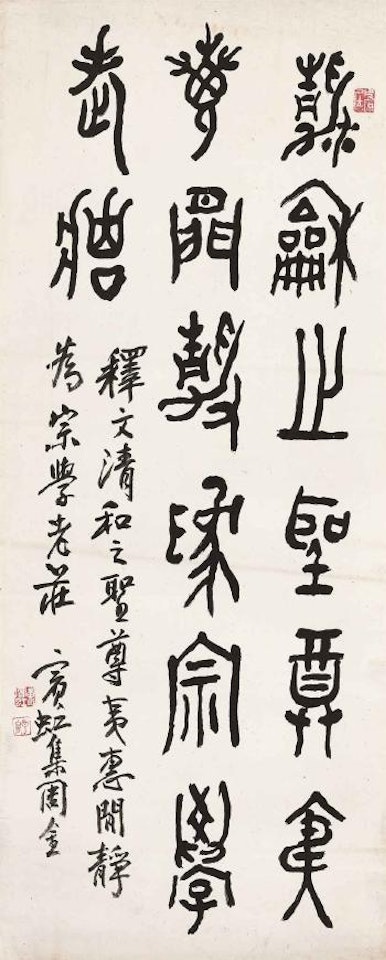 清龢之聖尊夷
惠閒靜為宗學
老莊
釋文清和之聖尊夷惠閒靜
為宗學老莊 賓虹集周金